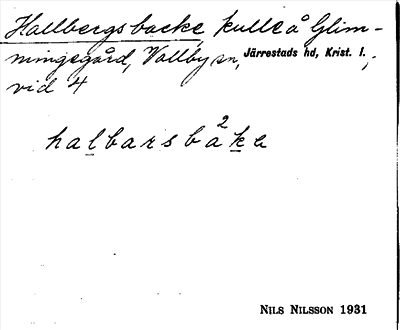 Hallbergsbacke, kulle å Glim-
mingegård, Vallby sn, Järrestads hd, Krist. l.,
vid 4
halbarsba²ke
NILS NILSSON 1931